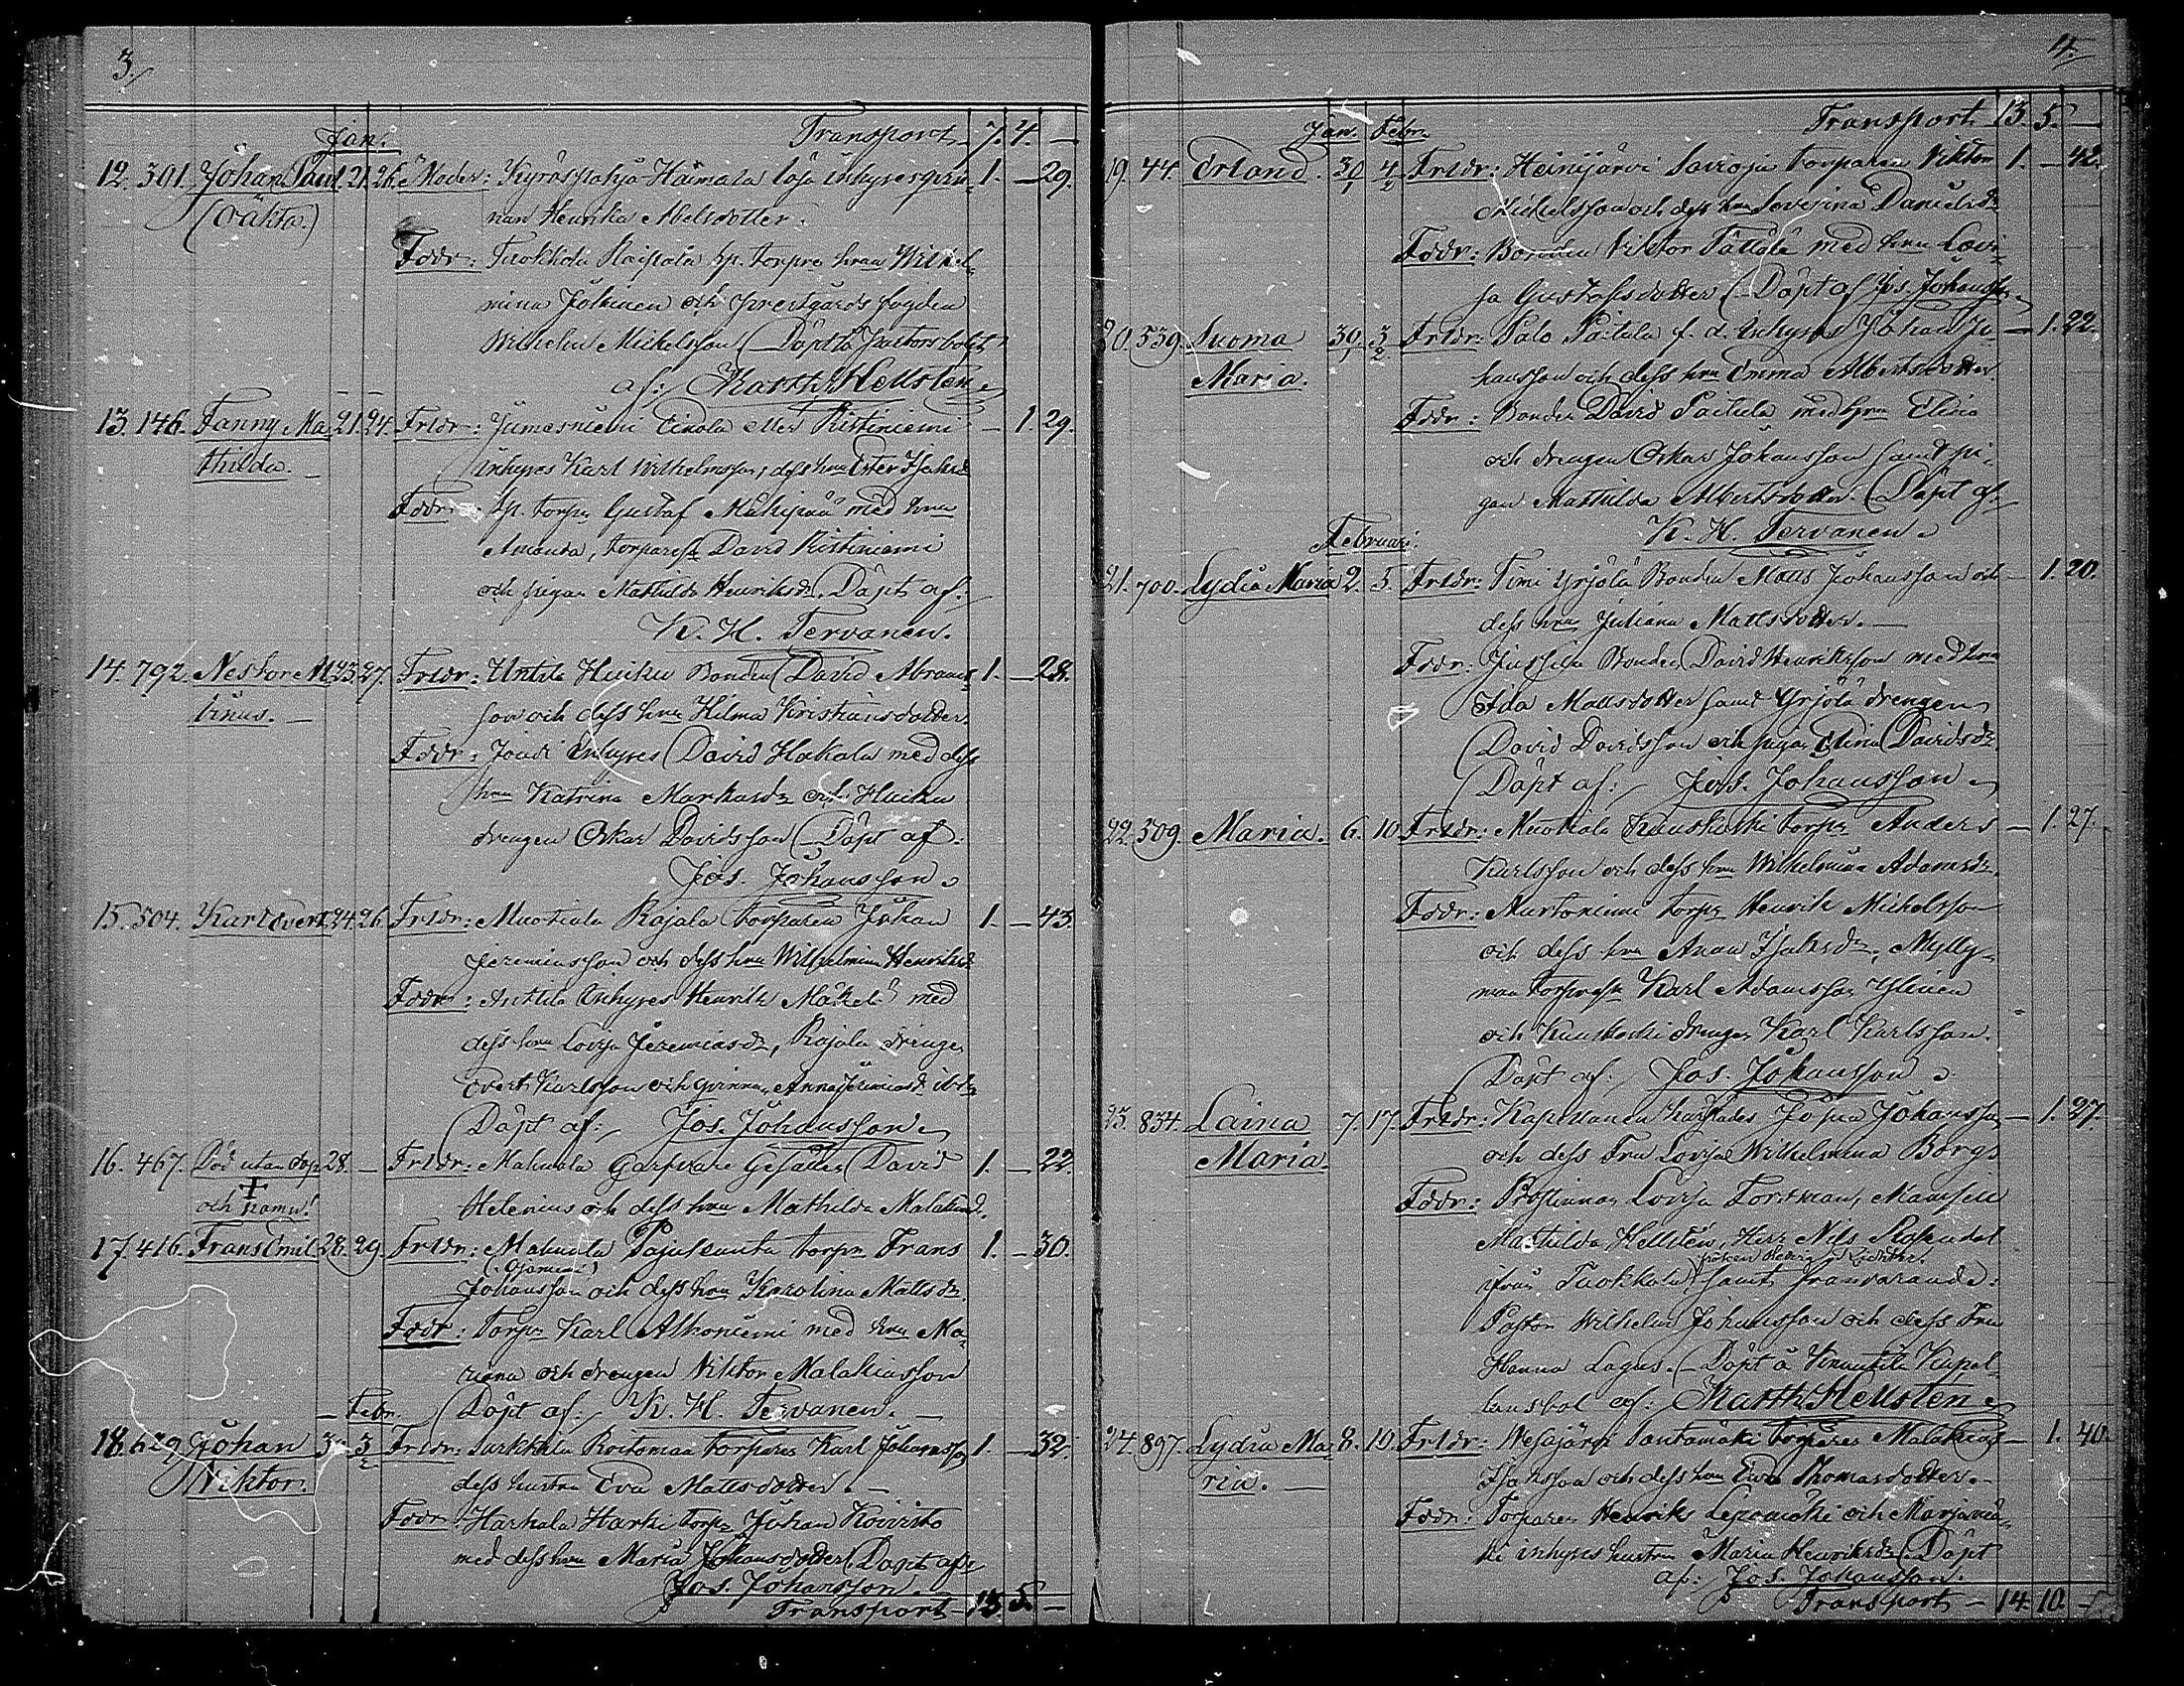 3.
Jan. Transport 7. 4. —
12. 301. Johan Paul 21. 26. Moder: Kyröspohja Haimala löja inhyseqvin- 1. — 29.
(oäkta.) nan Henrika Abelsdotter.
Fddr: Tuokkola Raipala sp. torpre hrun Wilhel-
mina Jokinen och prestgårds fogden
Wilhelm Mickelsson (Döpt å pastorsbolet
af: Matth. Hellsten
13. 146. Fanny Ma- 21. 24. Frldr: Jumesniemi Eerola eller Ristiniemi — 1. 29.
thilda. — inhyses Karl Wilhelmsson, dess hru Ester Isaksd.
Fddr: Sp. torpr Gustaf Mäkipää med hru
Amanda, torparesn David Ristiniemi
och pigan Mathilda Henriksd. Döpt af:
K. H. Tervanen.
14. 792. Nestor M 23. 27. Frldr: Untila Huiku Bonden David Abrams- 1. — 28.
tinus. — son och dess hru Hilma Kristiansdotter.
Fddr: Jondi Inhyses David Hakala med dess
hru Katrina Markusdr och Huiku
drengen Oskar Davidsson (Döpt af:
Jos. Johansson
15. 504. Karl Evert 24. 26. Frldr: Muotiala Rajala torparen Johan 1. — 43.
Jeremiasson och dess hru Wilhelmina Henriksd.
Fddr: Anttila Inhyses Henrik Mäkelä med
dess hru Lovisa Jeremiasdr, Rajala drengen
Evert Karlsson och qvinnan Anna Jeremiasd. ibdm
Döpt af: Jos. Johansson
16. 467. Död utan dop 28. — Frldr: Mahnala Garfvare Gesällen David 1. — 22.
och namn! Helenius och dess hru Mathilda Malakiasd.
17. 416. Frans Emil 28. 29. Frldr: Mahnala Pajulsanta torpr Frans 1. — 30.
(Ojaniemi)
Johansson och dess hru Karolina Mattsdr.
Fddr: torpr Karl Alhoniemi med hru Ma-
riana och drengen Viktor Malakiasson
— Febr. (Döpt af: K. H. Tervanen. —
18. 629. Johan 30. 3/2 Frldr: Sarkkila Roitomaa torparen Karl Johansson 1. — 32.
Viktor. dess hustru Eva Mattsdotter. —
Fddr: Harkala Harki torpr Johan Koivisto
med dess hru Maria Johansdotter. (Döpt af:
Jos. Johansson.
Transport — 13. 5. —
4.
Jan. Febr. Transport 13. 5. —
19. 44. Erland. 30/1 4/2 Frldr: Heinijärvi torparen Viktor 1. — 42.
Mickelsson och dess hru Serafina Danielsdr
Fddr: Bonden Viktor Pättälä med hru Lovi-
sa Gustafsdotter (Döpt af Jos. Johansson
20. 539. Suoma 30/1 3/2 Frldr: Palo Paitula f. d. Inhyses Johan Jo- — 1. 22.
Maria. hansson och dess hru Emma Albertsdotter.
Fddr: Bonden David Paitula med hru Elina
och drengen Oskar Johansson samt pi-
gan Mathilda Albertsdotter. (Döpt af
K. H. Tervanen
Februari.
21. 700. Lydia Maria 2. 5. Frldr: Timi Yrjölä Bonden Matts Johansson och — 1. 20.
dess hru Juliana Mattsdotter. —
Fddr: Jussila Bonden David Henriksson med hru
Ida Mattsdotter samt Yrjölä drengen
David Davidsson och pigan Elina Davidsdr.
(Döpt af: Jos. Johansson
22. 509. Maria. 6. 10. Frldr: Muotiala Kuuskoski torpr Anders — 1. 27.
Karlsson och dess hru Wilhelmina Adamsdr.
Fddr: Aurtoniemi torpr Henrik Mickelsson
och dess hru Anna Isaksdr, Mylly-
maa torparesn Karl Adamsson Ylinen
och Kuuskoski drengen Karl Karlsson.
(Döpt af: Jos. Johansson
23. 834. Laina 7. 17. Frldr: Kapellanen Charl Johansson — 1. 27.
Maria. och dess Fru Lovisa Wilhelmina Borgs
Fddr: Prostinnan Lovisa Forsman, Mamsell
Mathilda Hellsten, Herr Nils Rosendal
ifrån Tuokkola samt franvarande:
Pastor Wilhelm Johansson och dess Fru
Hanna Lagus. (Döpt å Vinautila Kapel-
lansbol af: Matth. Hellsten
24. 897. Lydia Ma- 8. 10. Frldr: Wesajärvi Santamäki torparen Malakias — 1. 40.
ria. — Isaksson och dess hru Eva Thomasdotter. —
Fddr: Torparen Henriks Lepomäki och Marjamä-
ki inhyses hustru Maria Henriksdr (Döpt
af: Jos. Johansson.
Transport — 14. 10. —